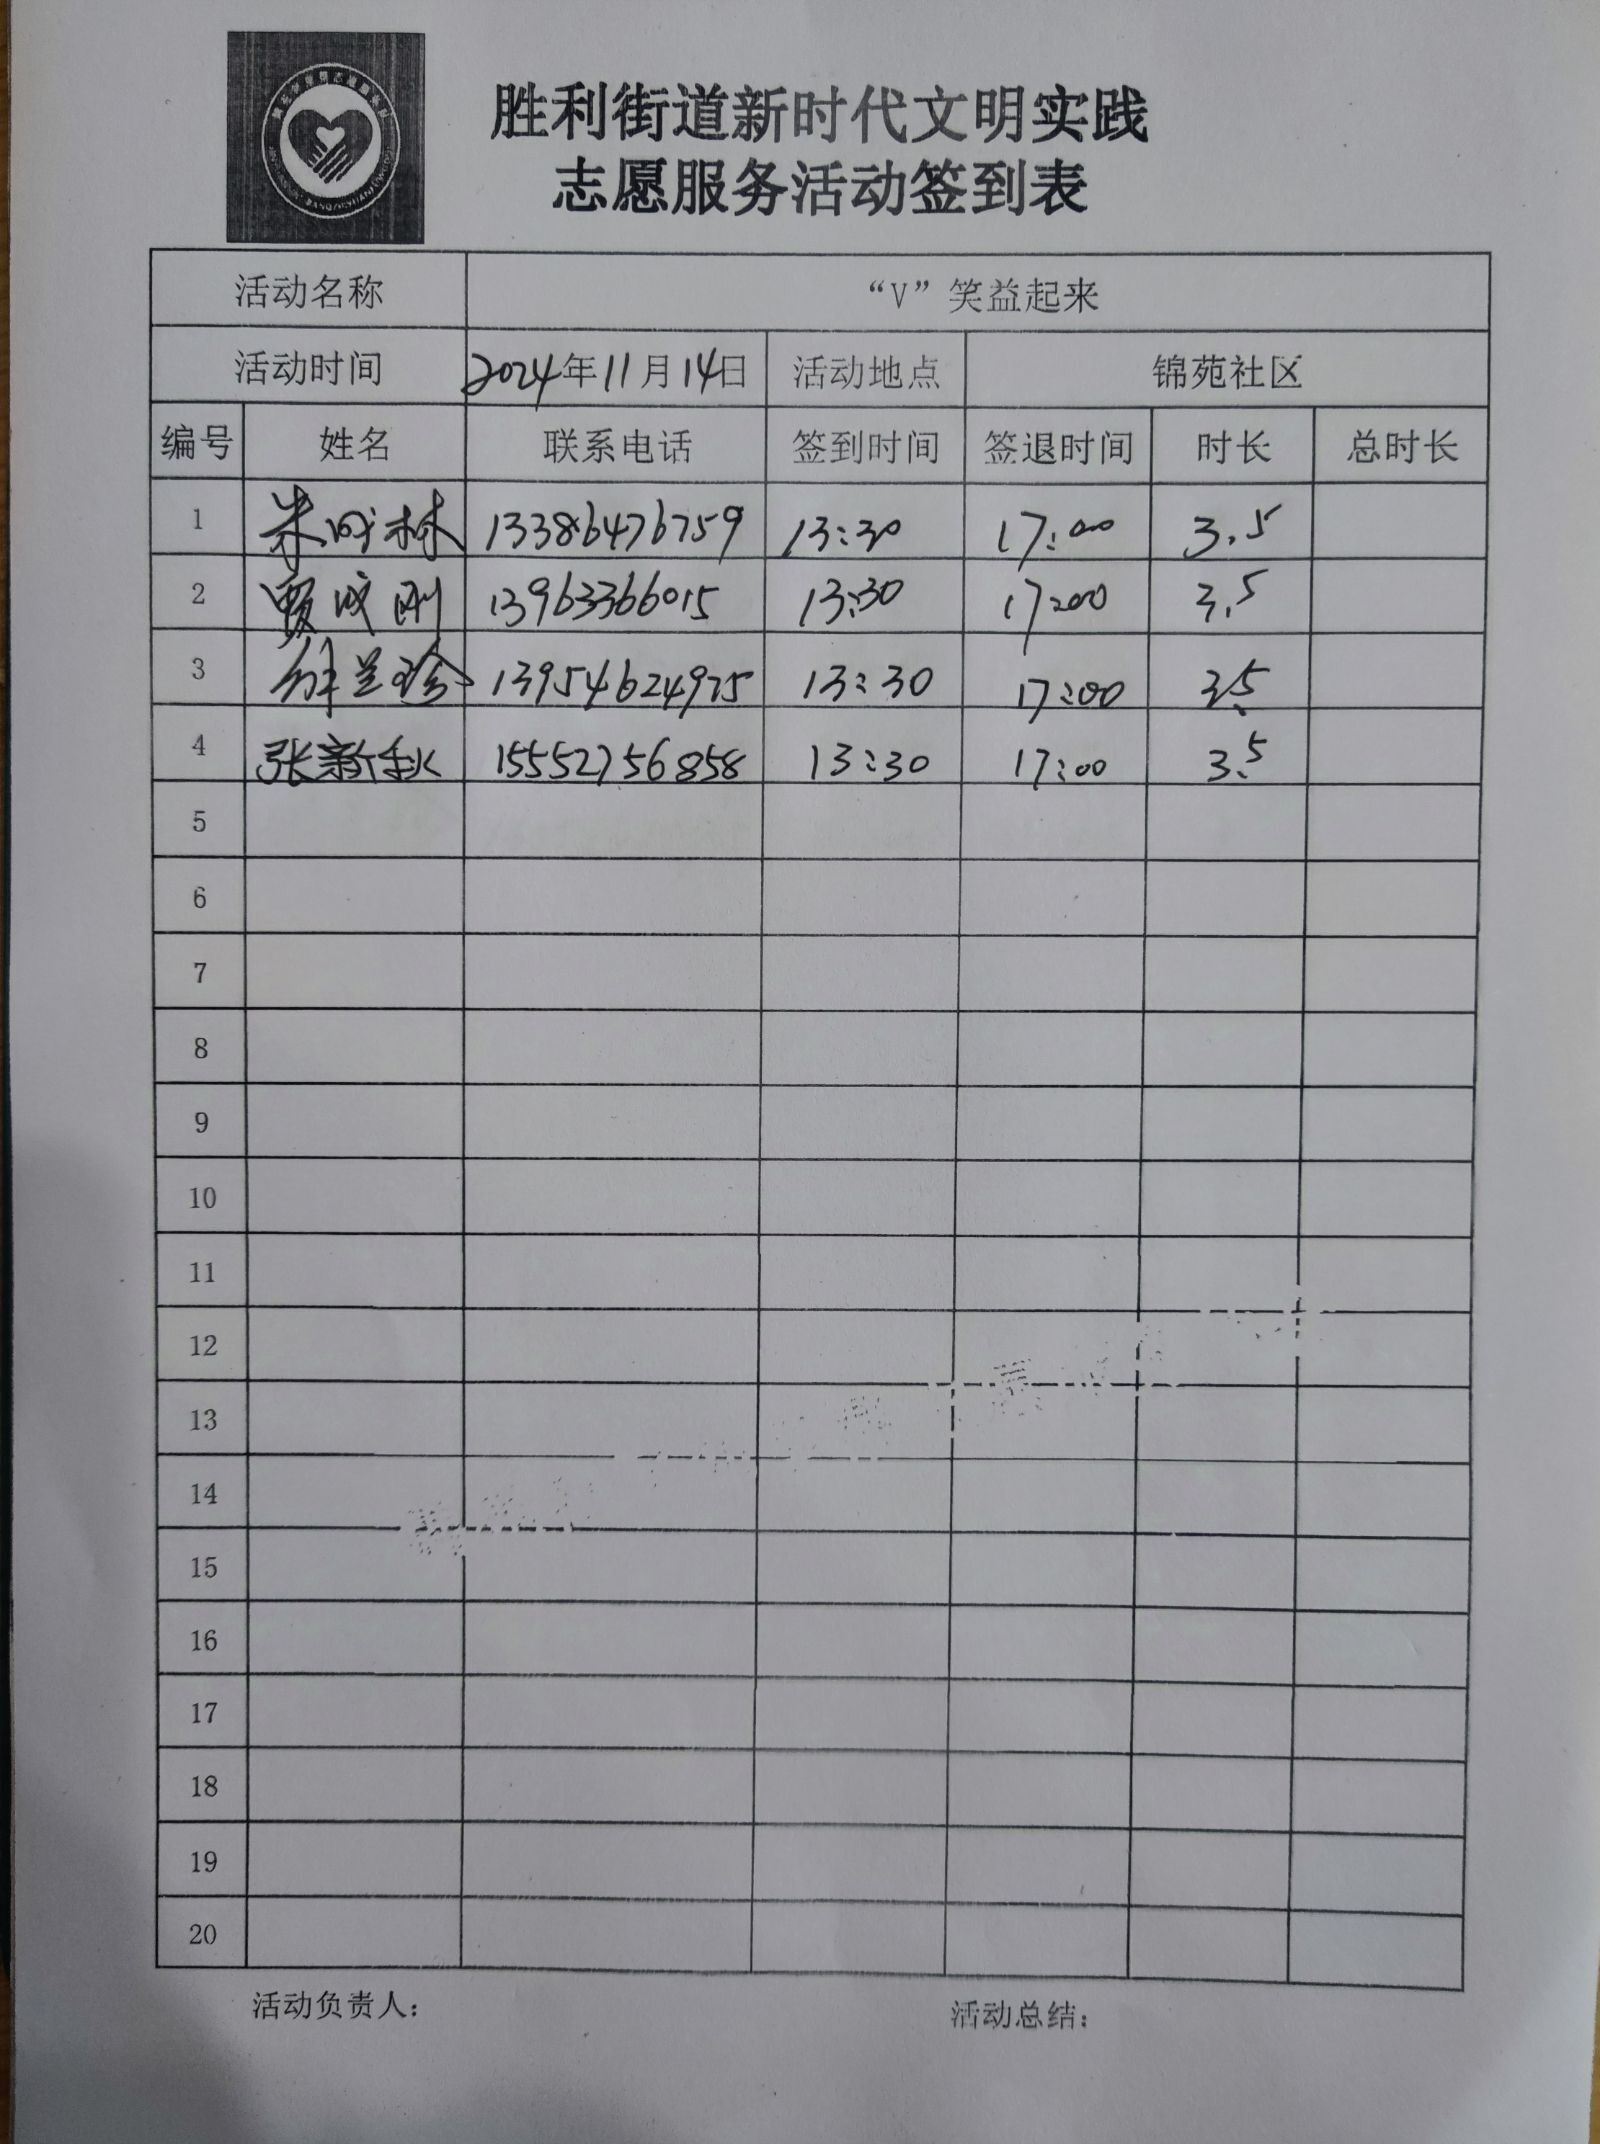 胜利街道新时代文明实践
志愿服务活动签到表
活动名称 “V”笑益起来
活动时间 2024年11月14日 活动地点 锦苑社区
编号 姓名 联系电话 签到时间 签退时间 时长 总时长
1 林 13386476759 13:30 17:00 3.5
2 贾成刚 13963366015 13:30 17:00 3.5
3 兰珍 13954624975 13:30 17:00 3.5
4 张新秋 15552756858 13:30 17:00 3.5
5
6
7
8
9
10
11
12
13
14
15
16
17
18
19
20
活动负责人： 活动总结：